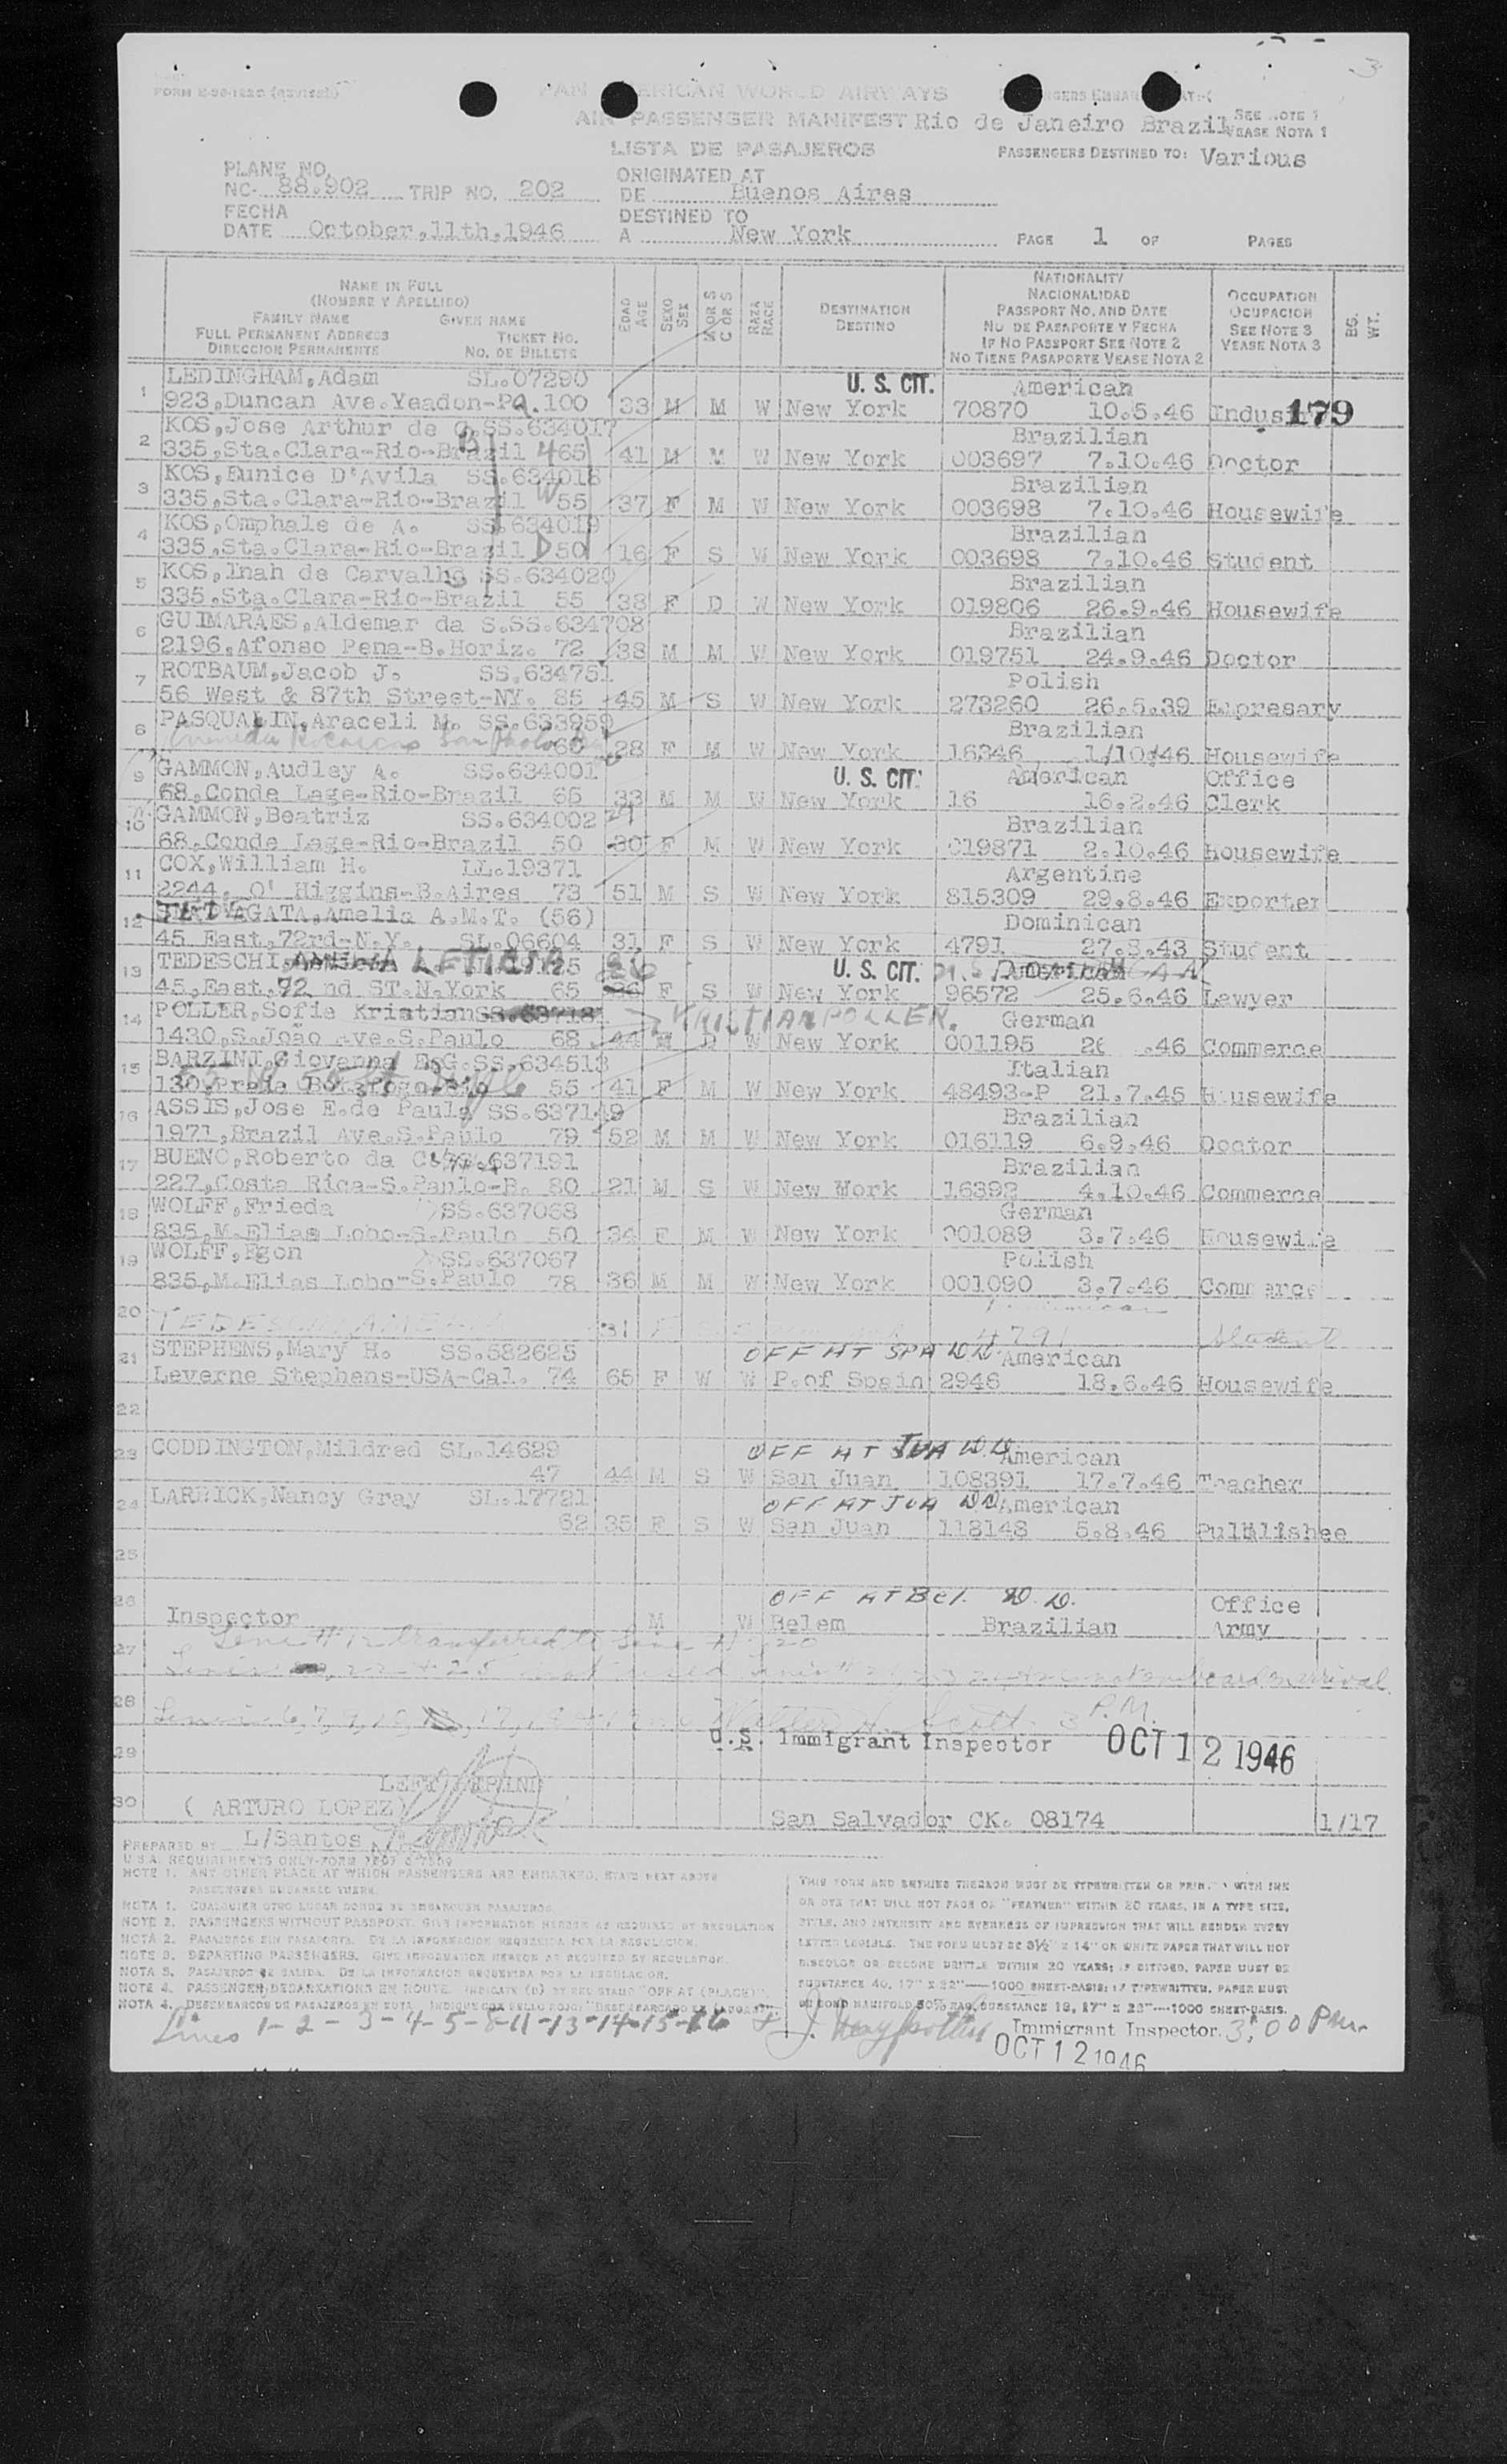 3
FORM
PAN AMERICAN WORLD AIRWAYS
AIR PASSENGER MANIFEST Rio de Janeiro Brazil SEE NOTE 1
VEASE NOTA 1
LISTA DE PASAJEROS PASSENGERS DESTINED TO: Various
PLANE NO.
NC- 88.902 TRIP NO. 202
ORIGINATED AT
DE Buenos Aires
FECHA
DATE October,11th,1946
DESTINED TO
A New York
PAGE 1 OF PAGES
NAME IN FULL
(NOMBRE Y APELLIDO)
FAMILY NAME GIVEN NAME
FULL PERMANENT ADDRESS TICKET No.
DIRECCION PERMANENTE No. DE BILLETE
EDAD AGE
SEXO SEX
M OR S C OR S
RAZA RACE
DESTINATION
DESTINO
NATIONALITY
NACIONALIDAD
PASSPORT NO. AND DATE
NU DE PASAPORTE Y FECHA
IF NO PASSPORT SEE NOTE 2
NO TIENE PASAPORTE VEASE NOTA 2
OCCUPATION
OCUPACION
SEE NOTE 3
VEASE NOTA 3
BG. WT.
1 LEDINGHAM,Adam SL.07290 U. S. CIT. American
923,Duncan Ave.Yeadon-Pa.100 33 M M W New York 70870 10.5.46 179
2 KOS,Jose Arthur de C.SS.634017 Brazilian
335,Sta.Clara-Rio-Brazil 65 41 M M W New York 003697 7.10.46 Doctor
3 KOS,Eunice D'Avila SS.634018 Brazilian
335,Sta.Clara-Rio-Brazil 55 37 F M W New York 003698 7.10.46 Housewife
4 KOS,Omphale de A. SS.634019 Brazilian
335,Sta.Clara-Rio-Brazil 50 16 F S W New York 003698 7.10.46 Student
5 KOS,Inah de Carvalho SS.634020 Brazilian
335,Sta.Clara-Rio-Brazil 55 38 F D W New York 019806 26.9.46 Housewife
6 GUIMARAES,Aldemar da S.SS.634708 Brazilian
2196,Afonso Pena-B.Horiz. 72 38 M M W New York 019751 24.9.46 Doctor
7 ROTBAUM,Jacob J. SS.634751 Polish
56 West & 87th Street-NY. 85 45 M S W New York 273260 26.5.39 Empresary
8 PASQUALIN,Araceli M. SS.633959 Brazilian
60 28 F M W New York 16346 1/10/46 Housewife
9 GAMMON,Audley A. SS.634001 U. S. CIT. American Office
68,Conde Lage-Rio-Brazil 65 33 M M W New York 16 16.2.46 Clerk
10 GAMMON,Beatriz SS.634002 Brazilian
68,Conde Lage-Rio-Brazil 50 30 F M W New York 019871 2.10.46 Housewife
11 COX,William H. LL.19371 Argentine
2244, O' Higgins-B.Aires 73 51 M S W New York 815309 29.8.46 Exporter
12 AGATA,Amelia A.M.T. (56) Dominican
45 East,72rd-N.Y. SL.06604 31 F S W New York 4791 27.8.43 Student
13 TEDESCHI, LETICIA U. S. CIT. American
45,East,72 nd ST.N.York 65 26 F S W New York 96572 25.6.46 Lawyer
14 POLLER,Sofie Kristian KRISTIAN POLLER. German
1430,S.João Ave.S.Paulo 68 44 M D W New York 001195 .46 Commerce
15 BARZINI,Giovanna E.G.SS.634513 Italian
130,Praia Botafogo-Rio 55 41 F M W New York 48493-P 21.7.45 Housewife
16 ASSIS,Jose E.de Paula SS.637149 Brazilian
1971,Brazil Ave.S.Paulo 79 52 M M W New York 016119 6.9.46 Doctor
17 BUENO,Roberto da 637191 Brazilian
227,Costa Rica-S.Paulo-B. 80 21 M S W New Work 16392 4.10.46 Commerce
18 WOLFF,Frieda SS.637068 German
835,M.Elias Lobo-S.Paulo 50 34 F M W New York 001089 3.7.46 Housewife
19 WOLFF,Egon SS.637067 Polish
835,M.Elias Lobo-S.Paulo 78 36 M M W New York 001090 3.7.46 Commerce
20 31 F 4791 Student
21 STEPHENS,Mary H. SS.582625 OFF AT SPA W.W. American
Leverne Stephens-USA-Cal. 74 65 F W W P.of Spain 2946 18.6.46 Housewife
22
23 CODDINGTON,Mildred SL.14629 OFF AT JUA W.W. American
47 44 M S W San Juan 108391 17.7.46 Teacher
24 LARRICK,Nancy Gray SL.17721 OFF AT JUA W.W. American
62 35 F S W San Juan 118148 5.8.46
25
26 OFF AT Bel. W. W. Office
Inspector M W Belem Brazilian Army
27 Line # 12 transferred to Line # 20
28 Walter H. Scott 3 P.M.
29 U.S. Immigrant Inspector OCT 12 1946
30 ( ARTURO LOPEZ)
San Salvador CK. 08174 1/17
PREPARED BY L/Santos
NOTE 1. ANY OTHER PLACE AT WHICH PASSENGERS ARE EMBARKED, STATE NEXT ABOVE
PASSENGERS EMBARKED THERE.
NOTA 1. CUALQUIER OTRO LUGAR DONDE SE EMBARQUEN PASAJEROS.
NOTE 2. PASSENGERS WITHOUT PASSPORT. GIVE INFORMATION HEREON AS REQUIRED BY REGULATION
NOTA 2. PASAJEROS SIN PASAPORTE. DE LA INFORMACION REQUERIDA POR LA REGULACION.
NOTE 3. DEPARTING PASSENGERS. GIVE INFORMATION HEREON AS REQUIRED BY REGULATION.
NOTA 3. PASAJEROS DE SALIDA. DE LA INFORMACION REQUERIDA POR LA REGULACION.
NOTE 4. PASSENGER DEBARKATIONS EN ROUTE. INDICATE (D) BY RED STAMP "OFF AT (PLACE)".
NOTA 4. DESEMBARCOS DE PASAJEROS EN RUTA.
THIS FORM AND ENTRIES THEREON MUST BE TYPEWRITTEN OR WITH INK
OR DYE THAT WILL NOT FADE OR "FEATHER" WITHIN 20 YEARS, IN A TYPE SIZE,
STYLE, AND INTENSITY AND EVENNESS OF IMPRESSION THAT WILL RENDER EVERY
LETTER LEGIBLE. THE FORM MUST BE 8½ X 14" ON WHITE PAPER THAT WILL NOT
DISCOLOR OR BECOME BRITTLE WITHIN 20 YEARS; IF DITTOED, PAPER MUST BE
SUBSTANCE 40, 17" X 22"—1000 SHEET-BASIS; IF TYPEWRITTEN, PAPER MUST
BE BOND MANIFOLD 50% RAG, SUBSTANCE 16, 17" X 22"—1000 SHEET-BASIS.
Lines 1-2-3-4-5-8-11-13-14-15-16 Immigrant Inspector. 3:00 Pm
OCT 12 1946